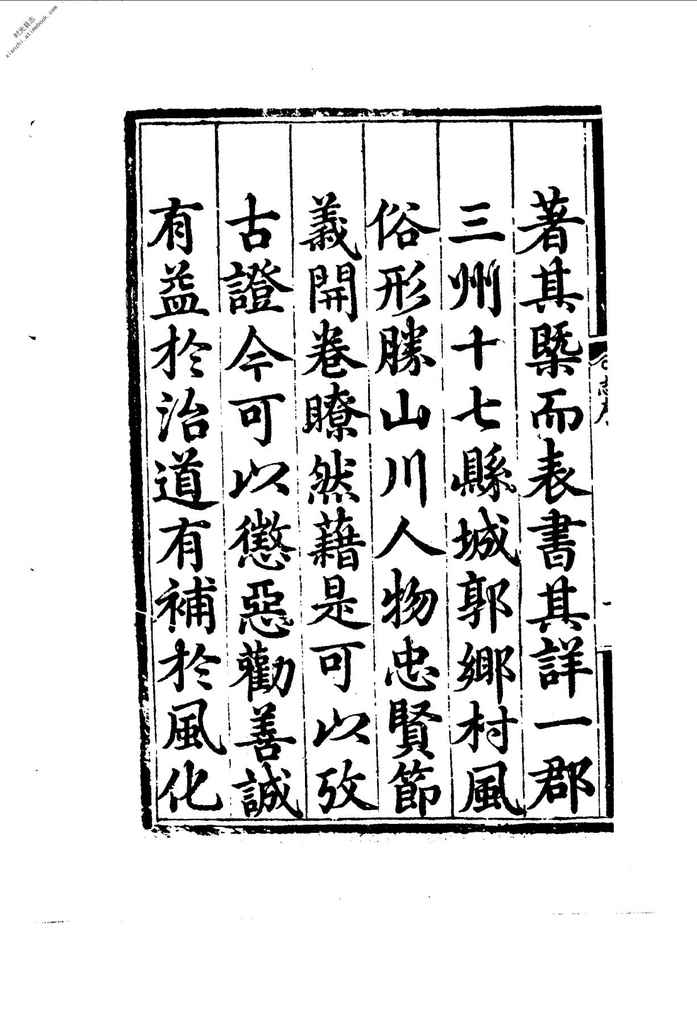 著其槩而表書其詳一郡
三州十七縣城郭鄉村風
俗形勝山川人物忠賢節
義開卷瞭然藉是可以攷
古證今可以懲惡勸善誠
有益於治道有補於風化
时光县志